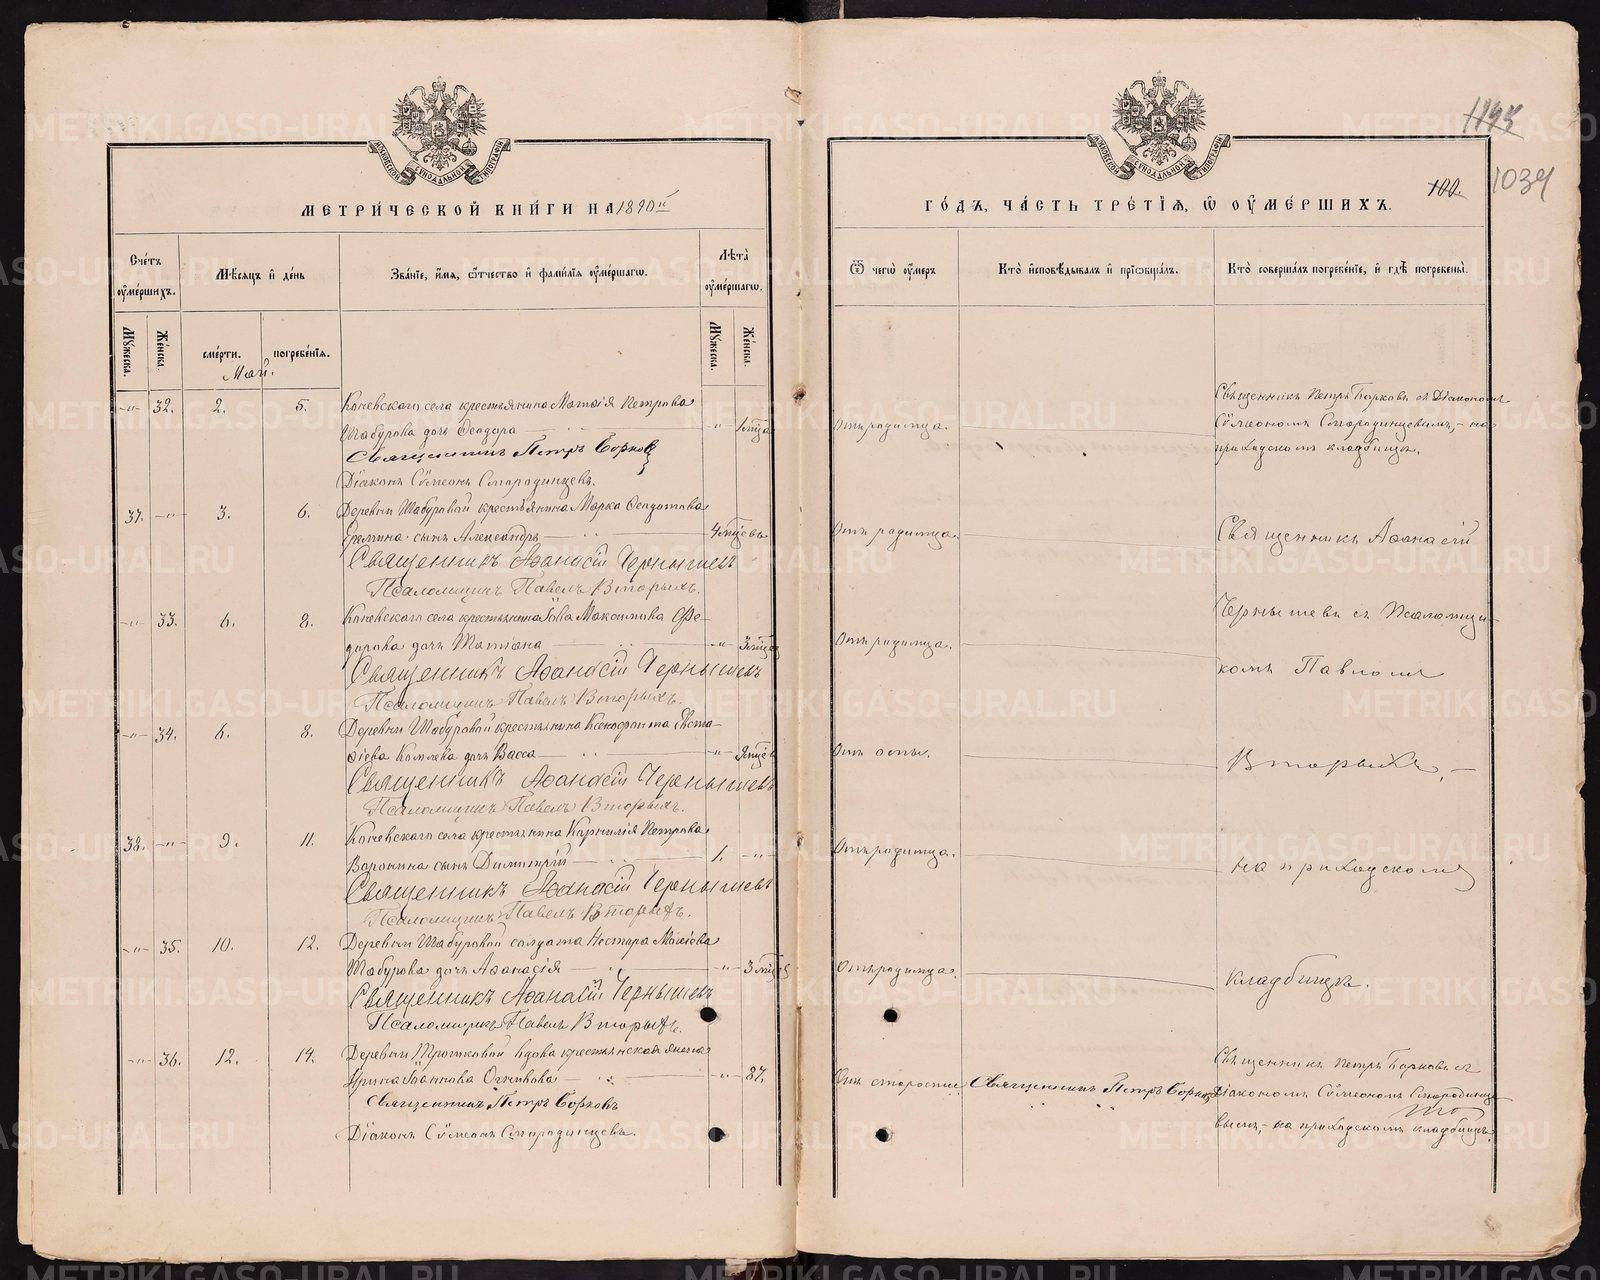 МЕТРИЧЕСКОЙ КНИГИ НА 1890й
Счетъ умершихъ.
Мѣсяцъ и день
Званіе, имя, отчество и фамилія умершаго.
Лѣта умершаго.
Мужеска.
Женска.
смерти.
погребенія.
Мужеска.
Женска.
Май.
-„- 32. 2. 5. Коневскаго села крестьянина Матѳія Петрова
Шабурова дочь Ѳеодора -„-
Священникъ Петръ Борковъ
Діаконъ Сѵмеонъ Смородинцевъ.
37. -„- 3. 6. Деревни Шабуровой крестьянина Марка Ѳедотова
сынъ Александръ 4 мѣсяцъ
Священникъ Аѳанасій Чернышевъ
Псаломщикъ Павелъ Вторыхъ.
-„- 33. 6. 8. Коневскаго села крестьянина Іова Максимова Ѳе-
дорова дочь Татіана -„-
Священникъ Аѳанасій Чернышевъ
Псаломщикъ Павелъ Вторыхъ.
-„- 34. 6. 8. Деревни Шабуровой крестьянина Ксенофонта Евста-
ѳіева Комлева дочь Васса -„-
Священникъ Аѳанасій Чернышевъ
Псаломщикъ Павелъ Вторыхъ.
38. -„- 9. 11. Коневскаго села крестьянина Корнилія Петрова
Воронина сынъ Димитрій 1. -„-
Священникъ Аѳанасій Чернышевъ
Псаломщикъ Павелъ Вторыхъ.
-„- 35. 10. 12. Деревни Шабуровой солдата Нестора
Шабурова дочь Аѳанасія -„-
Священникъ Аѳанасій Чернышевъ
Псаломщикъ Павелъ Вторыхъ.
-„- 36. 12. 14. Деревни вдова крестьянская жена
Ирина Іоаннова -„- 87.
Священникъ Петръ Борковъ
Діаконъ Сѵмеонъ Смородинцевъ.
1034
100.
ГОДЪ, ЧАСТЬ ТРЕТІЯ, Ѡ УМЕРШИХЪ.
Ѿ чего умеръ
Кто исповѣдывалъ и пріобщалъ.
Кто совершалъ погребеніе, и гдѣ погребены.
Отъ родимца.
Священникъ Петръ Борковъ съ Діакономъ
Сѵмеономъ Смородинцевымъ, - на
приходскомъ кладбищѣ.
Отъ родимца.
Священникъ Аѳанасій
Чернышевъ съ Псаломщи-
Отъ родимца.
комъ Павломъ
Отъ оспы.
Вторыхъ, -
Отъ родимца.
на приходскомъ
Отъ родимца.
кладбищѣ.
Отъ старости.
Священникъ Петръ Борковъ
Священникъ Петръ Борковъ съ
Діакономъ Сѵмеономъ Смородинце-
вымъ, - на приходскомъ кладбищѣ.
METRIKI.GASO-URAL.RU